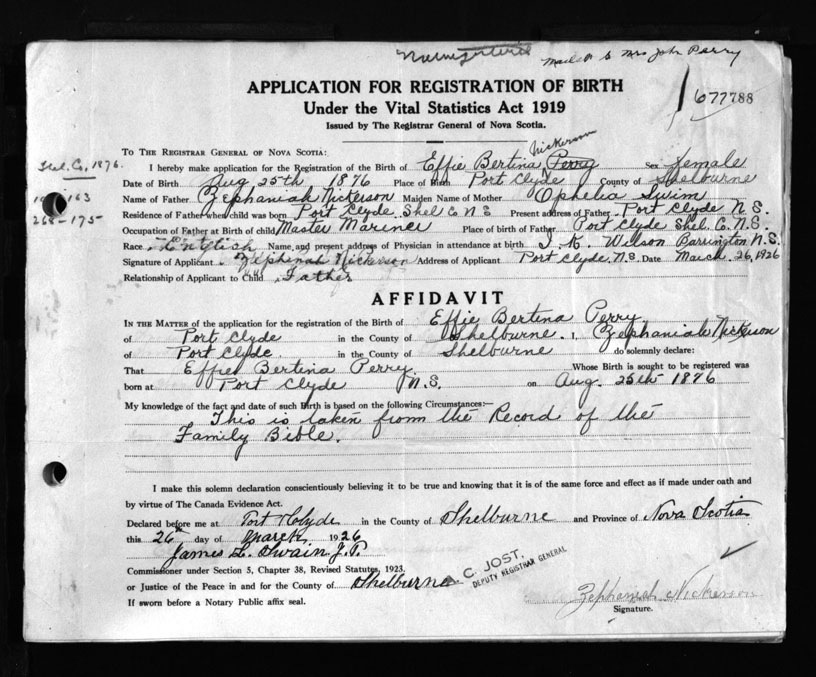 Mailed to Mrs John Perry
APPLICATION FOR REGISTRATION OF BIRTH
Under the Vital Statistics Act 1919
Issued by The Registrar General of Nova Scotia.
677788
Shel. Co, 1876.
163
268-175
TO THE REGISTRAR GENERAL OF NOVA SCOTIA:
Nickerson
I hereby make application for the Registration of the Birth of Effie Bertina Perry Sex Female
Date of Birth Aug 25th 1876 Place of Birth Port Clyde County of Shelburne
Name of Father Zephaniah Nickerson Maiden Name of Mother Ophelia Swim
Residence of Father when child was born Port Clyde. Shel C N S Present address of Father Port Clyde N S.
Occupation of Father at Birth of child Master Mariner Place of birth of Father Port Clyde Shel. C. N.S.
Race English Name, and present address of Physician in attendance at birth I. K. Wilson Barrington N.S.
Signature of Applicant Zephinah Nickerson Address of Applicant Port Clyde. N.S. Date March. 26, 1926
Relationship of Applicant to Child Father
AFFIDAVIT
IN THE MATTER of the application for the registration of the Birth of Effie Bertina Perry
of Port Clyde in the County of Shelburne. I, Zephaniah Nickerson
of Port Clyde. in the County of Shelburne do solemnly declare:
That Effie Bertina Perry. Whose Birth is sought to be registered was
born at Port Clyde N.S. on Aug. 25th 1876
My knowledge of the fact and date of such Birth is based on the following Circumstances:—
This is taken from the Record of the
Family Bible.
I make this solemn declaration conscientiously believing it to be true and knowing that it is of the same force and effect as if made under oath and
by virtue of The Canada Evidence Act.
Declared before me at Port Clyde in the County of Shelburne and Province of Nova Scotia
this 26th day of March 1926
James L. Swain J.P.
Commissioner under Section 5, Chapter 38, Revised Statutes, 1923.
or Justice of the Peace in and for the County of Shelburne
If sworn before a Notary Public affix seal.
A. C. JOST,
DEPUTY REGISTRAR GENERAL
Zephaniah Nickerson
Signature.